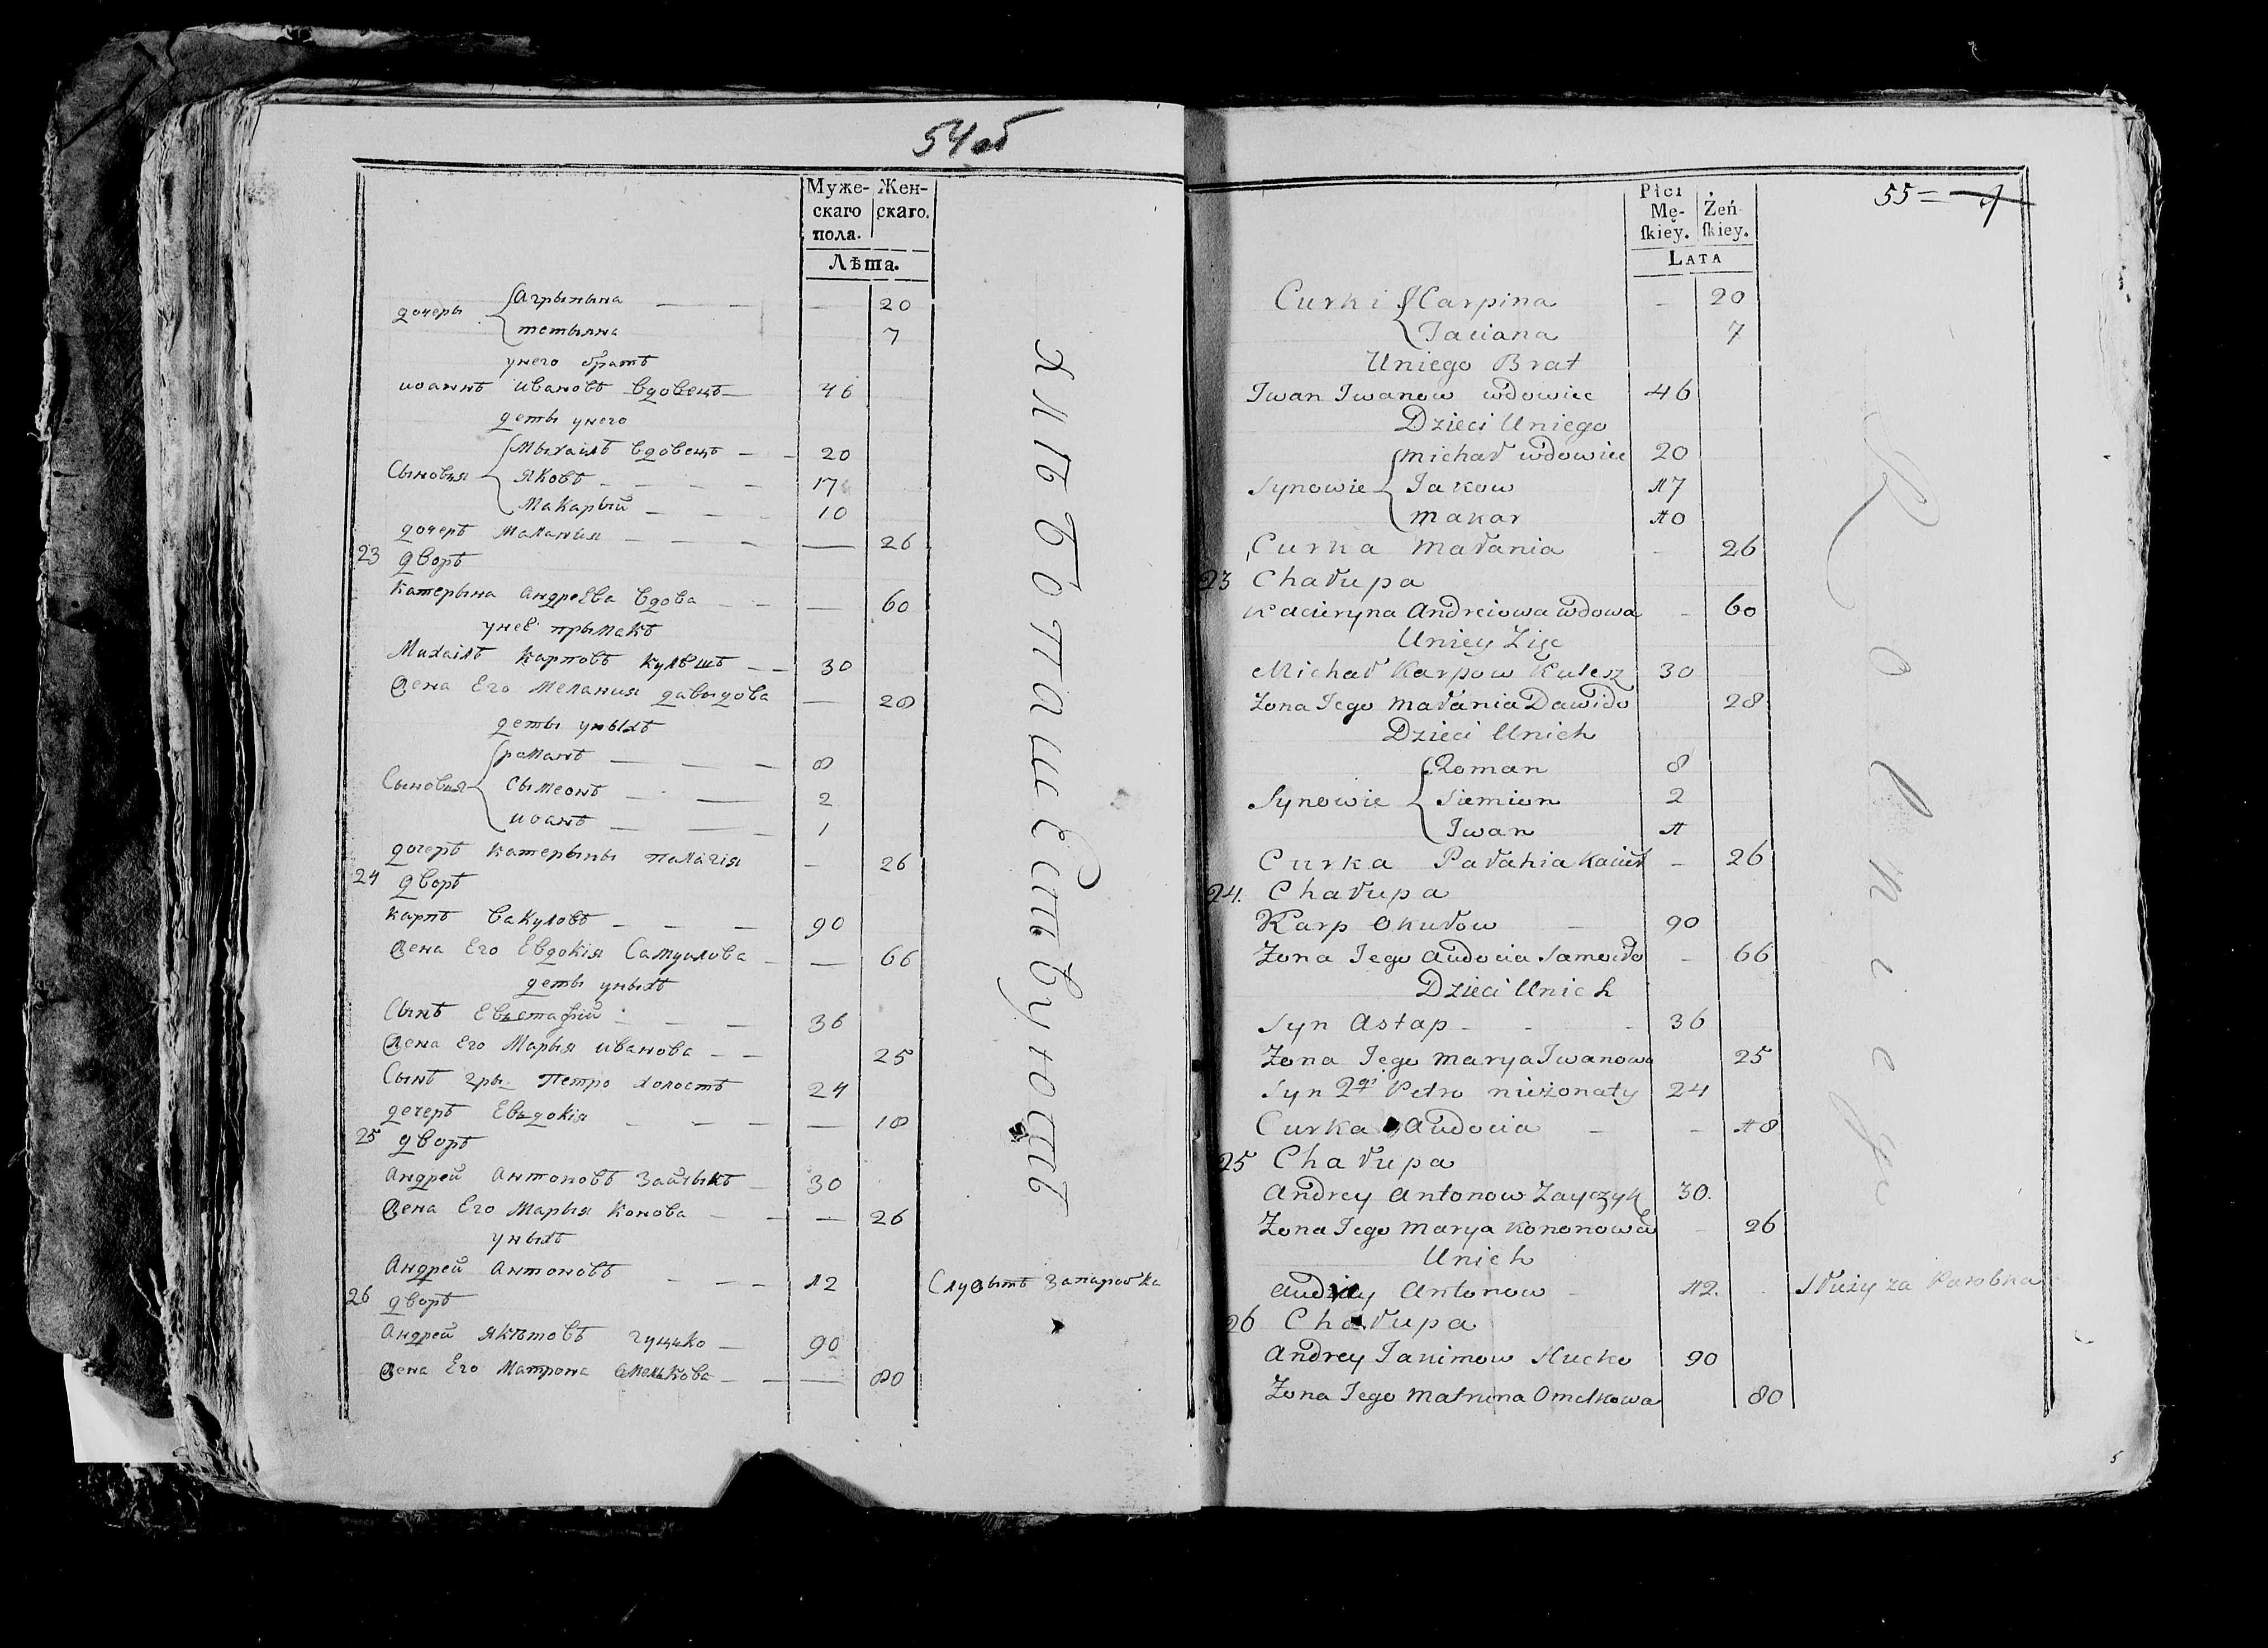 54 об
Муже- Жен-
скаго скаго.
пола.
Лѣта.
дочеры Агрыпына — — — 20
тетьяна 7
унего братъ
иоаннъ ивановъ вдовецъ — 46
деты унего
Мыхаилъ вдовецъ — — 20
Сыновья Яковъ — — — — 17
Макарый — — — 10
дочеръ Маланія — — — — 26
23 дворъ
катерына андреева вдова — — — 60
унеё прымакъ
Михаілъ карповъ кулѣшъ — — 30
жена Его Мелания давыдова — 28
деты уныхъ
романъ — — — 8
Сыновья Сымеонъ — — 2
иоанъ — — — 1
дочеръ катерыны палагія — 26
24 дворъ
карпъ вакуловъ — — — 90
жена Его Евдокія Самуилова — — 66
деты уныхъ
Сынъ Евьстафій — — — 36
жена Его Марыя иванова — — 25
Сынъ 2ры Петро холостъ 24
дочеръ Евьдокія — — — — 18
25 дворъ
Андрей антоновъ зайчыкъ — 30
жена Его Марыя конова — — — 26
уныхъ
Андрей Антоновъ — — — 12 Служытъ запаробка
26 дворъ
Андрей якымовъ гуцько — 90
жена Его Матрона Омелькова — — — 80
хлѣбопашествуютъ
55 =
Płci
Mę- Żeń-
ſkiey. ſkiey.
LATA
Curki Carpina — 20
Taciana 7
Uniego Brat
Iwan Iwanow wdowiec 46
Dzieci Uniego
Michał wdowiec 20
Synowie Iakow 17
Makar 10
Curka Małania - 26
23 Chałupa
Kacieryna Andreiowa wdowa - 60
Uniey Zięc
Michał Karpow Kulesz 30
Żona Iego Małania Dawido 28
Dzieci Unich
Roman 8
Synowie Siemion 2
Iwan 1
Curka Pałahia Kacier - 26
24. Chałupa
Karp Okułow — 90
Żona Iego Audocia Samoiło - 66
Dzieci Unich
Syn Astap - - - 36
Żona Iego Marya Iwanowa 25
Syn 2gi Petro nieżonaty 24
Curka Audocia — - 18
25 Chałupa
Andrey Antonow Zayczyk 30.
Żona Iego Marya Kononowa - 26
Unich
Andrey Antonow - 12. Służy za Parobka
26 Chałupa
Andrey Iakimow Hucko 90
Żona Iego Matrona Omelkowa 80
Rolniego
5